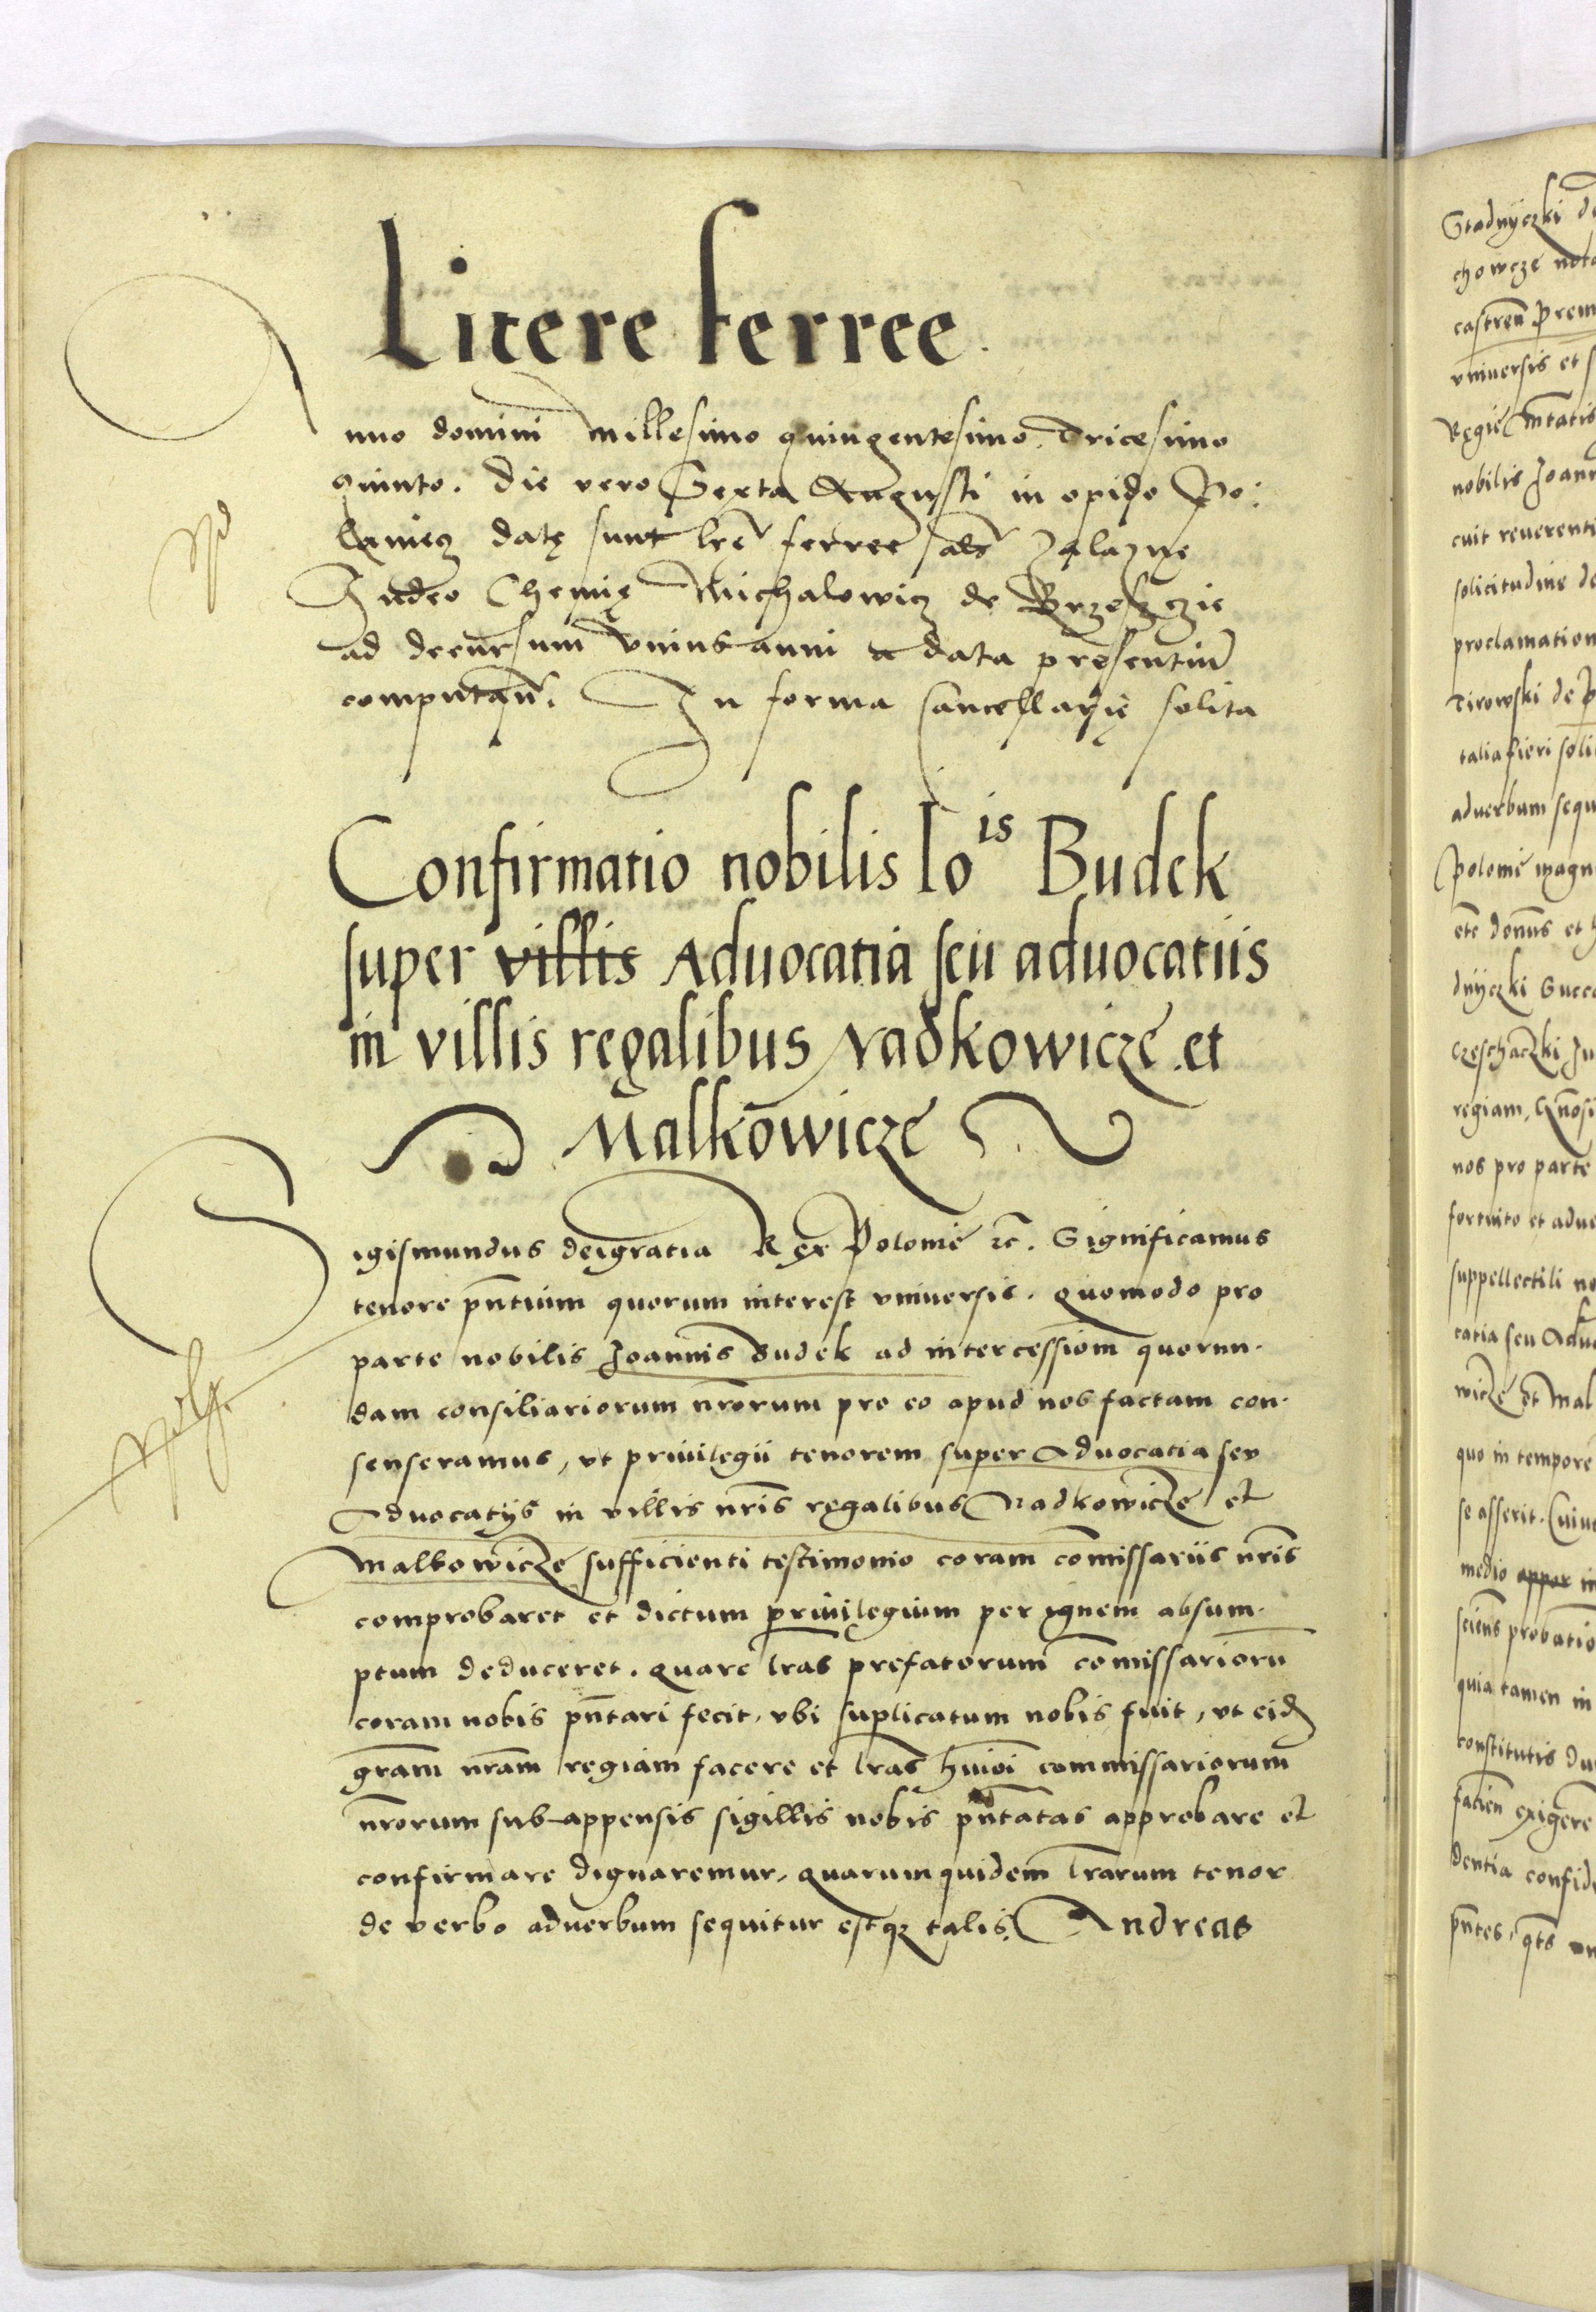 Litere ferree
Anno domini Millesimo quingentesimo Tricesimo
quinto. Die vero Sexta Augusti in opido Po:
laniecz datę sunt lrẽ ferree als Zelaznye
Judeo Chemię Michalowicz de Brzesczie
ad decursum vnius anni a data presentiũ
computañ. In forma Cancellarię solita
Confirmatio nobilis Iois Budek
super villis Aduocatia seu aduocatiis
in villis regalibus Nadkowicze et
Malkowicze
Sigismundus dei gratia Rex Polonie etc. Significamus
tenore pñtium quorum interest vniuersis. quomodo pro
parte nobilis Joannis Budek ad intercessionem quorun-
dam consiliariorum nrorum pro eo apud nos factam con-
senseramus, vt priuilegii tenorem super Aduocatia seu
Aduocatijs in villis nris regalibus Nadkowicze et
Malkowicze sufficienti testimonio coram comissariis nris
comprobaret et dictum priuilegium per ignem absum-
ptum deduceret. quare lras prefatorum comissarioru
coram nobis pñtari fecit, vbi suplicatum nobis fuit, vt eid
gram nram regiam facere et lras huioi commissariorum
nrorum sub appensis sigillis nobis pñtatas approbare et
confirmare dignaremur, quarum quidem lrarum tenor
de verbo aduerbum sequitur estqz talis. Andreas
Stadnyczki de
chowcze nota
castreñ prem
vniuersis et s
Regie mtatis
nobilis Joann
cuit reuerenti
solicitudine de
proclamation
Tirowski de p
talia fieri soli
aduerbum sequ
Polonie magn
dnyczki Succa
regiam,
nos pro parte
fortuito et adue
suppellectili no
catia seu Aduo
wicze et Mal
quo in tempore
se asserit. Cuius
medio appar in
sciens probatio
quia tamen in
constitutis du
facien exigere
dentia confid
pñtes,